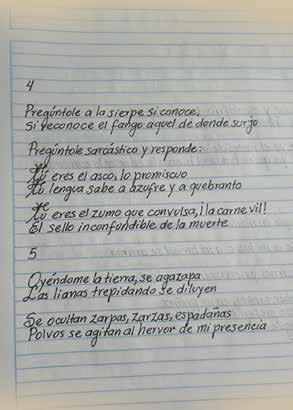 4
Pregúntole a la sierpe si conoce,
Si reconoce el fango aquel de donde surjo
Pregúntole sarcástico y responde:
Tú eres el asco, lo promiscuo
Tu lengua sabe a azufre y a quebranto
Tú eres el zumo que convulsa, ¡la carne vil!
El sello inconfundible de la muerte
5
Oyéndome la tierra, se agazapa
Las lianas trepidando se diluyen
Se ocultan zarpas, zarzas, espadañas
Polvos se agitan al hervor de mi presencia